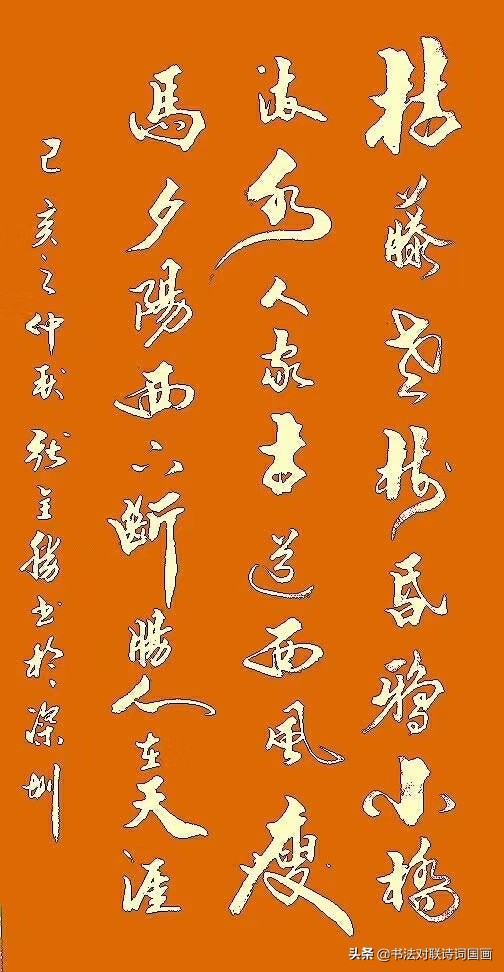 枯藤老树昏鴉小橋
流水人家古道西風瘦
馬夕陽西下斷腸人在天涯
己亥之仲秋勝书於深圳
头条 @书法对联诗词国画